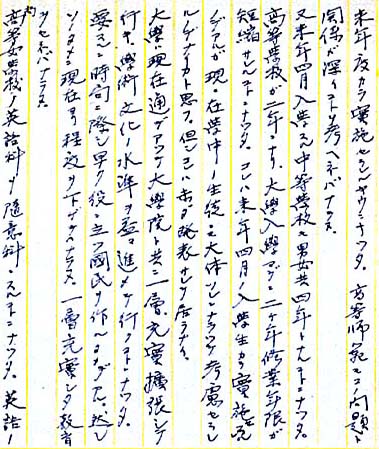 来年度カラ実施セラレルヤウニナツタ。高等師範モコノ問題ト
関係ガ深イコトヲ考ヘネバナラヌ。
又来年四月入学スル中等学校モ男女共四年トナルコトニナツタ。
高等学校ガ二年トナリ、大学入学マデニ二ケ年修業年限ガ
短縮サレルコトニナツタ。コレハ来年四月ノ入学生カラ実施セラレル
ノデアルガ現ニ在学中ノ生徒モ大体ソレニナラツテ考慮セラレ
ルノデナイカト思フ。但シコレハ未ダ発表サレテ居ラナイ。
大学ハ現在通デアツテ大学院ト共ニ一層充実拡張シテ
行キ、学術文化ノ水準ヲ益々進メテ行クコトニナツタ。
要スルニ時局ニ際シ早ク役ニ立ツ国民ヲ作ルノデアル。然シ
ソノタメニ現在ヨリ程度ヲ下ゲテハナラヌ。一層充実シタ教育
ヲセネバナラヌ。
高等女学校ノ英語科ヲ随意科ニスルコトニナツタ。英語ノ